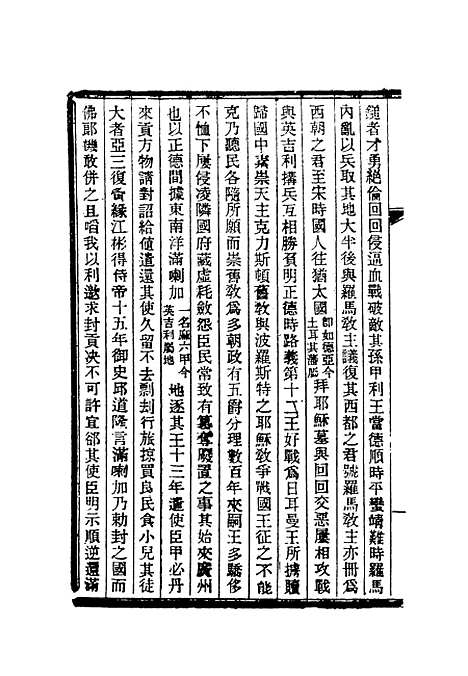 鎚者才勇絕倫回回侵逼血戰破敵其孫甲利王當德順時平蠻靖難時羅馬
內亂以兵取其地大半後與羅馬教主議復其西都之君號羅馬教主亦冊爲
西朝之君至宋時國人往猶太國卽如德亞今土耳其藩屬拜耶穌墓與回回交惡屢相攻戰
與英吉利搆兵互相勝負明正德時路義第十二王好戰爲日耳曼王所擄贖
歸國中素崇天主克力斯頓舊教與波羅斯特之耶穌教爭戰國王征之不能
克乃聽民各隨所願而崇舊教爲多朝政有五爵分理數百年來嗣王多驕侈
不恤下屢侵淩隣國府藏虛耗斂怨臣民常致有篡奪廢置之事其始來廣州
也以正德間據東南洋滿喇加一名麻六甲今英吉利屬地地逐其王十三年遣使臣甲必丹
來貢方物請對詔給値遣還其使久留不去剽刦行旅掠買良民食小兒其徒
大者亞三復夤緣江彬得侍帝十五年御史邱道隆言滿喇加乃勅封之國而
佛郎機敢併之且啗我以利邀求封貢決不可許宜郤其使臣明示順逆還滿